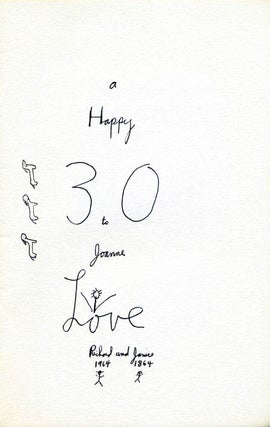 a
Happy
3.0
to
Joanne
Love
Richard and Janice
1964 1864